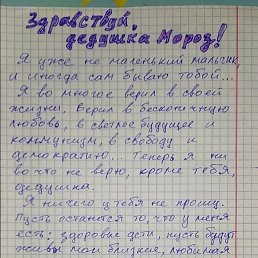 Здравствуй,
дедушка Мороз!
Я уже не маленький мальчик,
и иногда сам бываю тобой...
Я во многое верил в своей
жизни. Верил в бесконечную
любовь, в светлое будущее и
коммунизм, в свободу и
демократию... Теперь я ни
во что не верю, кроме тебя,
дедушка.
Я ничего у тебя не прошу.
Пусть останется то, что у меня
есть: здоровые дети, пусть будут
живы мои близкие, любимая